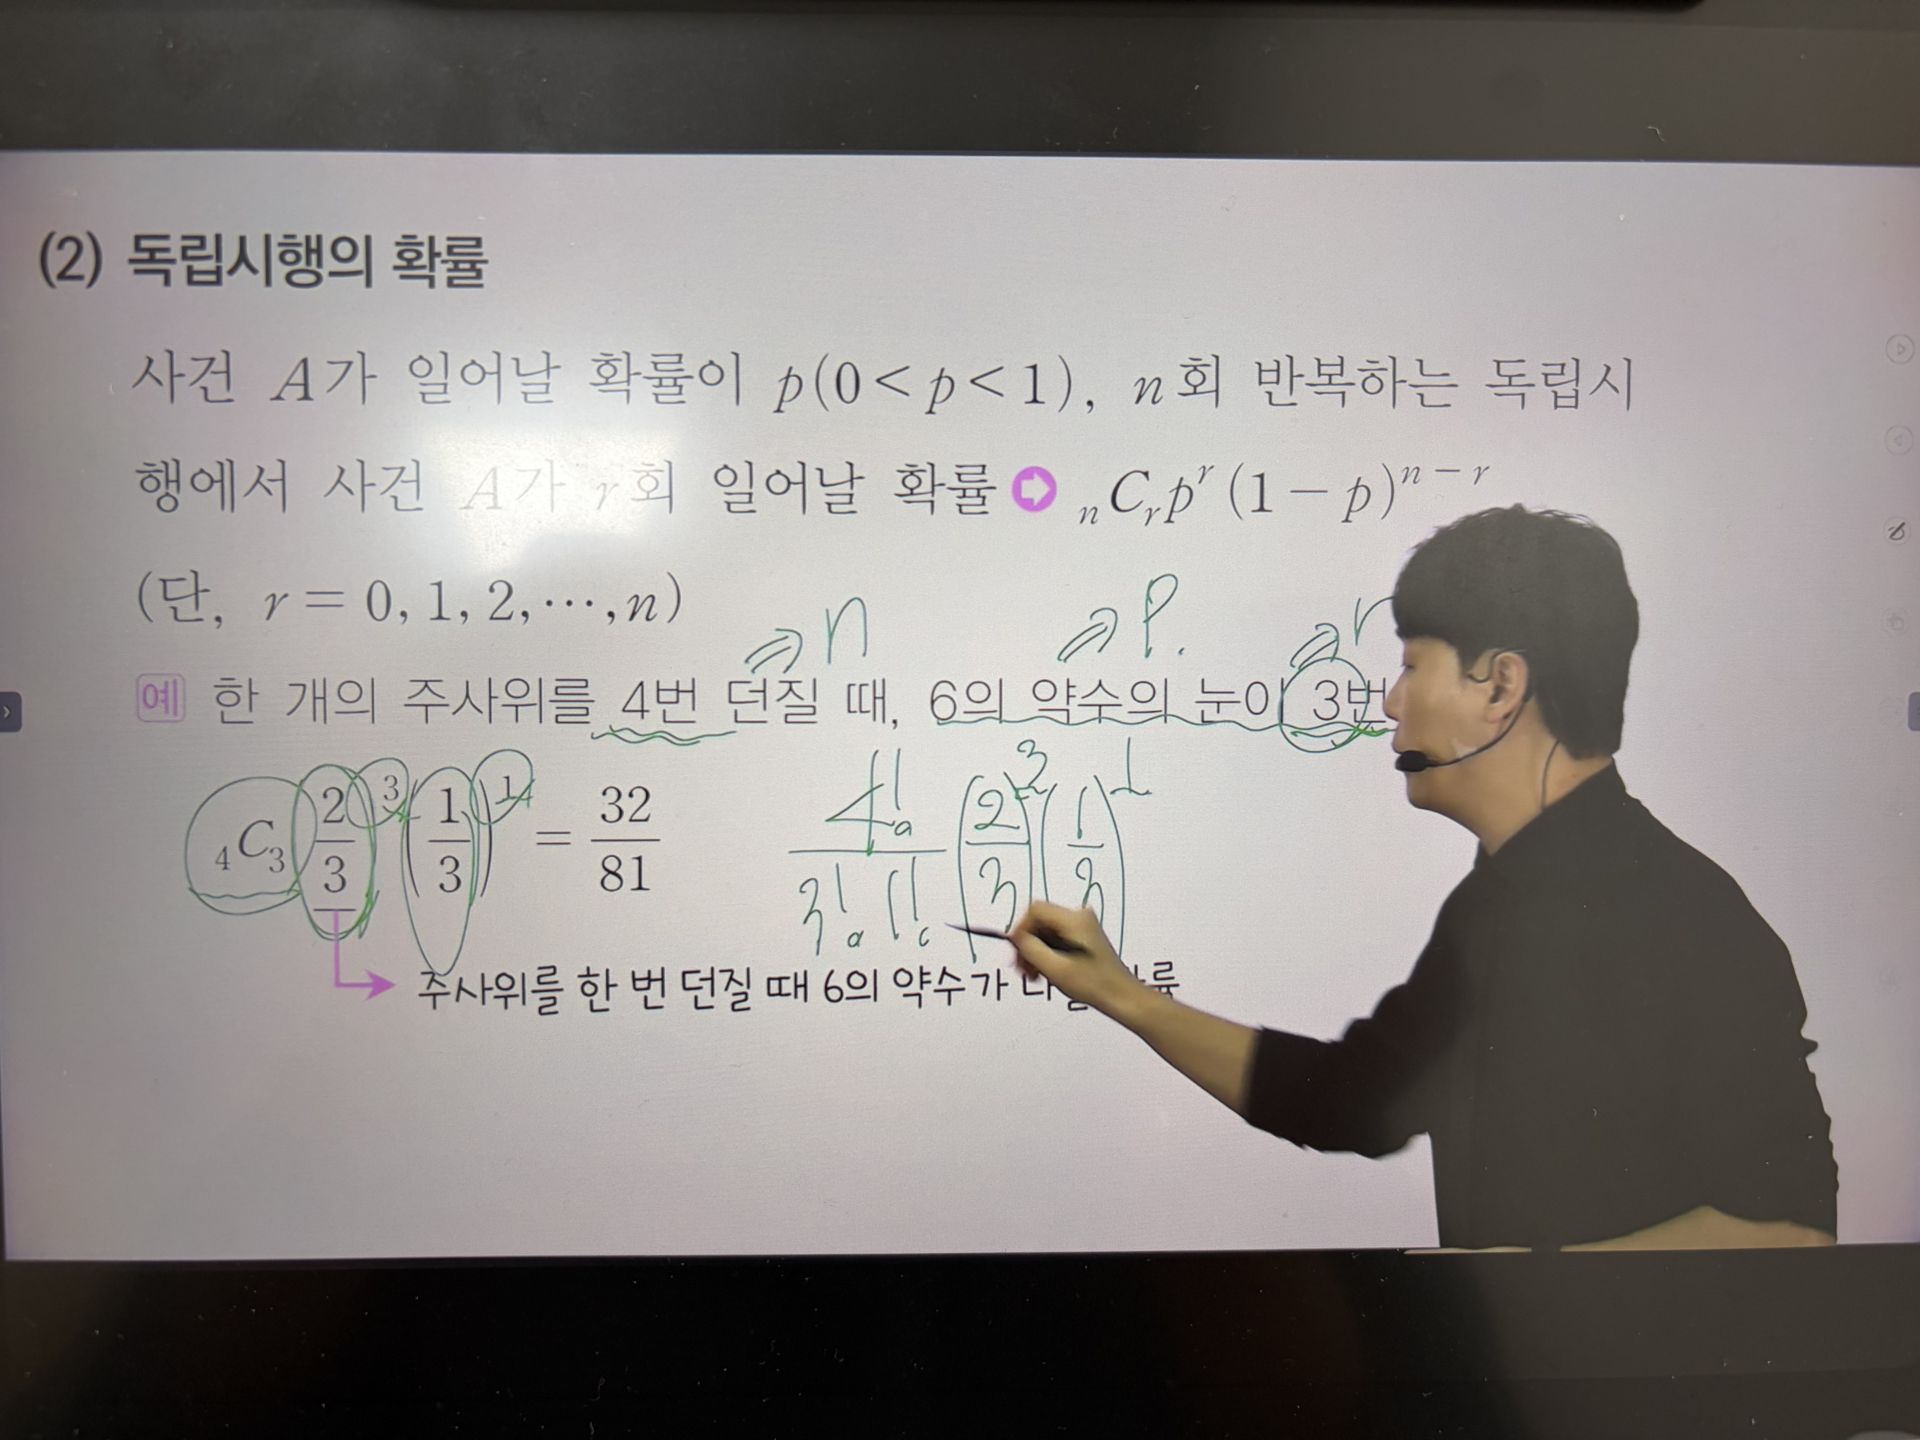 (2) 독립시행의 확률
사건 A가 일어날 확률이 p(0<p<1), n회 반복하는 독립시
행에서 사건 A가 r회 일어날 확률 ➡ ₙCᵣpʳ(1-p)ⁿ⁻ʳ
(단, r=0, 1, 2, ⋯, n)
⇒ n ⇒ P. ⇒ r
예 한 개의 주사위를 4번 던질 때, 6의 약수의 눈이 3번
₄C₃(2/3)³(1/3)¹ = 32/81 4!/3!1! (2/3)³(1/3)¹
주사위를 한 번 던질 때 6의 약수가